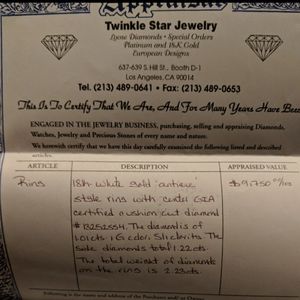 Appraisal
Twinkle Star Jewelry
Loose Diamonds • Special Orders
Platinum and 18K Gold
European Designs
637-639 S. Hill St., Booth D-1
Los Angeles, CA 90014
Tel. (213) 489-0641 • Fax: (213) 489-0653
This Is To Certify That We Are, And For Many Years Have Been
ENGAGED IN THE JEWELRY BUSINESS, purchasing, selling and appraising Diamonds,
Watches, Jewelry and Precious Stones of every name and nature.
We herewith certify that we have this day carefully examined the following listed and described
articles.
ARTICLE DESCRIPTION APPRAISED VALUE
Ring 18k white gold "antique" $9750
style ring with center GIA
certified cushion cut diamond
The diamond is
1.01cts I G color SI1 clarity. The
side diamonds total 1.22cts.
The total weight of diamonds
on the ring is 2.23cts.
Following is the name and address of the